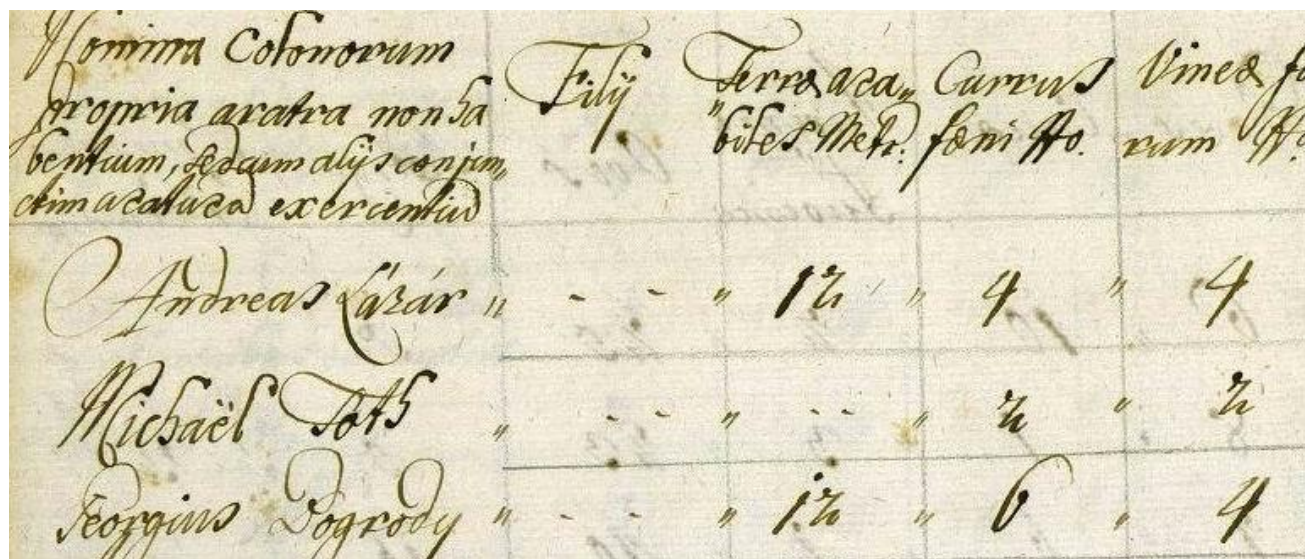 Nomina Colonorum
propria aratra non ha
bentium, sed cum alijs conjun„
ctim araturã exercentiũ
Filij
Terræ ara„
„biles Metr:
Currus
fœni No.
Vineæ fo
rum No.
Andreas Lázár „ - - „ 12 „ 4 „ 4
Michaël Toth „ - - „ - - „ 2 „ 2
Georgius Dogrody „ - - „ 12 „ 6 „ 4